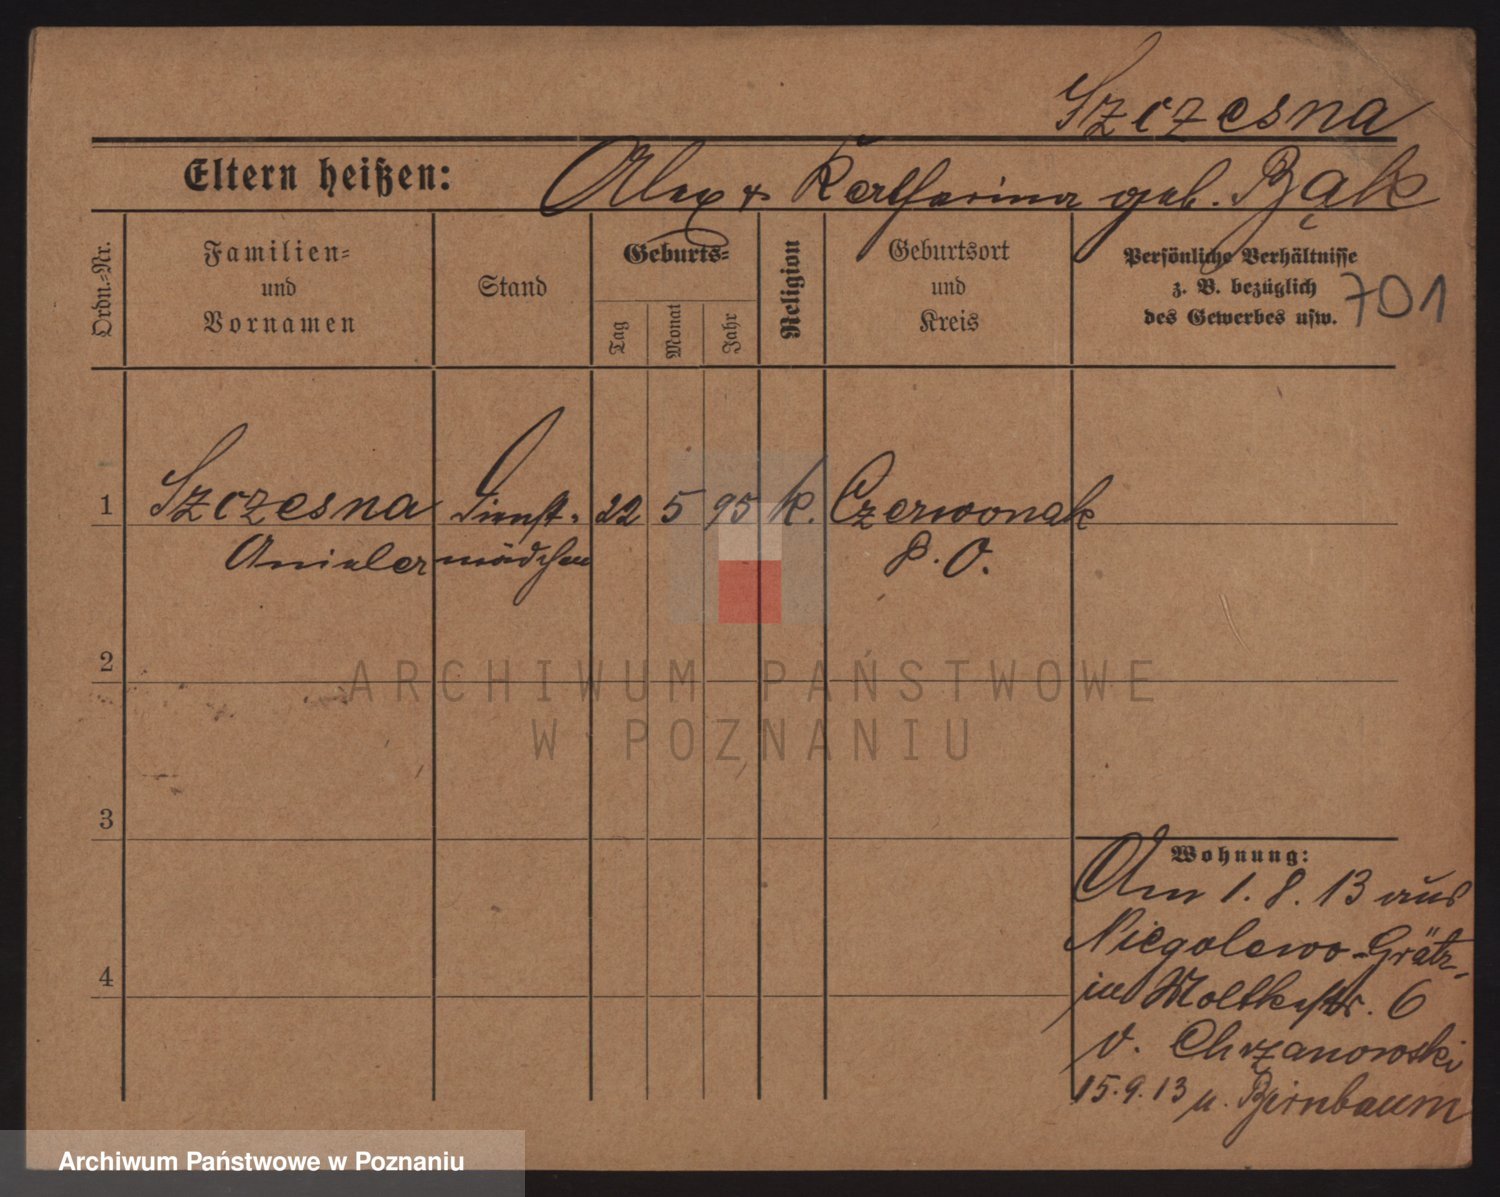 Szczesna
Eltern heißen: Alex & Katharina geb. Bąk
Ordn.-Nr.
Familien- und Vornamen
Stand
Geburts-
Tag
Monat
Jahr
Religion
Geburtsort und Kreis
Persönliche Verhältnisse
z. B. bezüglich
des Gewerbes usw.
701
1 Szczesna Dienst- 22 5 95 k. Czerwonak
Aniela mädchen P. O.
2
3
4
ARCHIWUM PAŃSTWOWE
W POZNANIU
Wohnung:
Am 1. 8. 13 aus
Niegolewo-Grätz-
in Moltkestr. 6
v. Chrzanowski
15. 9. 13 n. Birnbaum
Archiwum Państwowe w Poznaniu